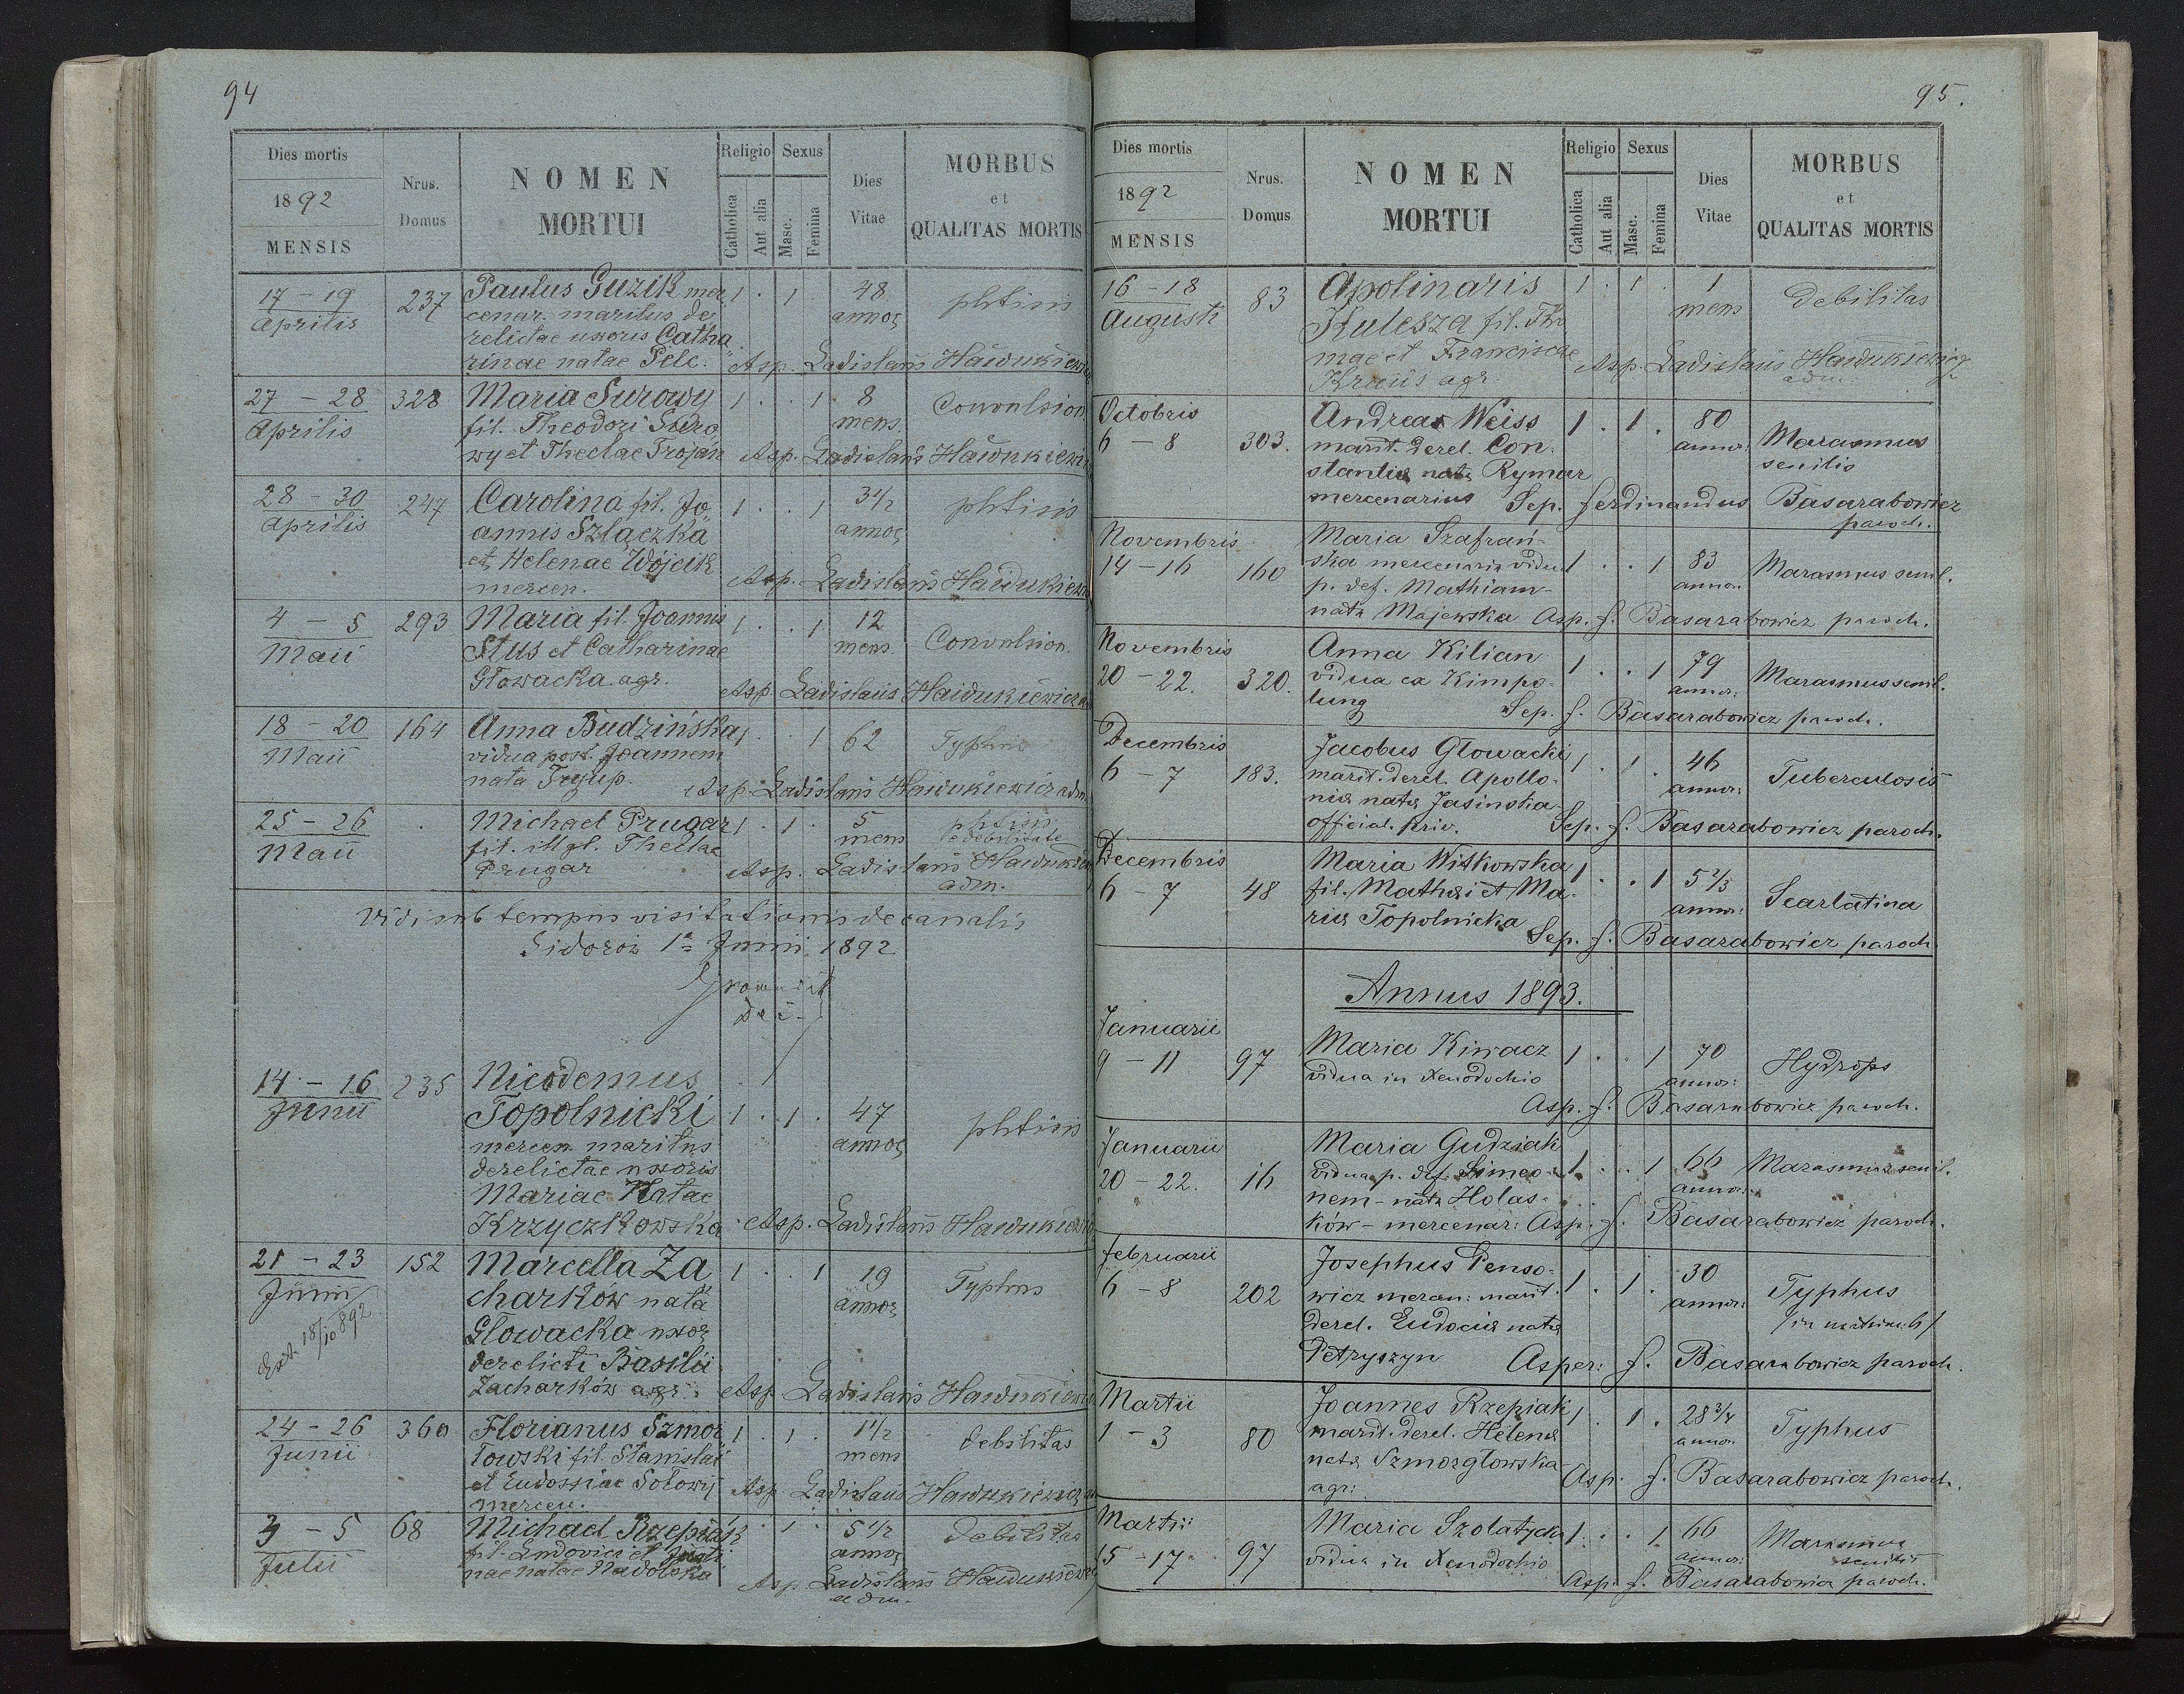 94
Dies mortis
1892
MENSIS
Nrus.
Domus
NOMEN
MORTUI
Religio
Catholica
Aut alia
Sexus
Masc.
Femina
Dies
Vitae
MORBUS
et
QUALITAS MORTIS
17 - 19
Aprilis
237
Paulus Guzik mer
cenar. maritus de
relictae uxoris Catha
rinae natae Pelc.
1 . 1
48
annor
phtisis
Asp. Ladislaus Haidukiewicz
27 - 28
Aprilis
328
Maria Surowy
fil. Theodori Suro
wy et Theclae Trojan
1 . . 1
8
mens.
Convulsion.
Asp. Ladislaus Haidukiewicz
28 - 30
Aprilis
247
Carolina fil. Jo
annis Szlączka
et Helenae Wójcik
mercen.
1 . . 1
3 1/2
annor
phtisis
Asp. Ladislaus Haidukiewicz
4 - 5
Maii
293
Maria fil. Joannis
Stus et Catharinae
Głowacka agr.
1 . . 1
12
mens.
Convulsion.
Asp. Ladislaus Haidukiewicz
18 - 20
Maii
164
Anna Budzińska
vidua post. Joannem
nata
1 . . 1
62
Typhus
Asp. Ladislaus Haidukiewicz adm.
25 - 26
Maii
Michael Prugar
fil. illgt. Theclae
Prugar
1 . 1 .
5
mens
phtisis
e debilitate
Asp. Ladislaus Haidukiewicz
adm.
Vidi sub tempus visitationis decanalis
Sidorow 1a Junii 1892
Dec.
14 - 16
Junii
235
Nicodemus
Topolnicki
mercen. maritus
derelictae uxoris
Mariae Natae
Krzyczkowska
1 . 1 .
47
annor
phtisis
Asp. Ladislaus Haidukiewicz
21 - 23
Junii
Ext. 18/10 892
152
Marcella Za
charków nata
Głowacka uxor
derelicti Basilii
Zacharków agr.
1 . . 1
19
annor
Typhus
Asp. Ladislaus Haidukiewicz
24 - 26
Junii
360
Florianus Szmor
łowski fil. Stanislai
et Eudossiae Sołowij
mercen.
1 . 1 .
1 1/2
mens
debilitas
Asp. Ladislaus Haidukiewicz
3 - 5
Julii
68
Michael Rzepiak
fil. Ludovici et Justi
nae natae Nadolska
. 1 .
5 1/2
annor
debilitas
Asp. Ladislaus Haidukiewicz
adm.
95.
Dies mortis
1892
MENSIS
Nrus.
Domus
NOMEN
MORTUI
Religio
Catholica
Aut alia
Sexus
Masc.
Femina
Dies
Vitae
MORBUS
et
QUALITAS MORTIS
16 - 18
Augusti
83
Apolinaris
Kulesza fil. Tho
mae et Franciscae
Kraus agr.
1 . 1 .
1
mens
debilitas
Asp. Ladislaus Haidukiewicz
adm.
Octobris
6 - 8
303.
Andreas Weiss
marit. derel. Con
stantiæ natæ Rymar
mercenarius
1 . 1 .
80
annor:
Marasmus
senilis
Sep. Ferdinandus Basarabowicz
paroch.
Novembris
14 - 16
160
Maria Szafrań-
ska mercenaria vidua
p. def. Mathiam -
nata Majewska
1 . . 1
83
annor.
Marasmus senil.
Asp. f. Basarabowicz paroch.
Novembris
20 - 22.
320.
Anna Kilian
vidua ex Kimpo-
lung
1 . . 1
79
annor.
Marasmus senil.
Sep. f. Basarabowicz paroch.
Decembris
6 - 7
183.
Jacobus Głowacki
marit. derel. Apollo-
niæ natæ Jasinska-
official. priv.
1 . 1 .
46
annor:
Tuberculosis
Sep. f. Basarabowicz paroch.
Decembris
6 - 7
48
Maria Witkowska
fil. Mathæi et Ma-
riæ Topolnicka
1 . . 1
5 2/3
annor:
Scarlatina
Sep. f. Basarabowicz paroch.
Annus 1893.
Januarii
9 - 11
97
Maria Kiwacz
vidua in Xenodochio
1 . . 1
70
annor:
Hydrops
Asp. f. Basarabowicz paroch.
Januarii
20 - 22.
16
Maria Gudziak
vidua p. def. Simeo-
nem - nata Holas-
ków - mercenar:
1 . . 1
66
annor.
Marasmus senil.
Asp. f. Basarabowicz paroch.
Februarii
6 - 8
202
Josephus Penso-
wicz mercen: marit.
derel. Eudociæ natæ
Petryszyn
1 . 1 .
30
annor:
Typhus
Asper: f. Basarabowicz paroch.
Martii
1 - 3
80
Joannes Rzepiak
marit. derel. Helenæ
natæ Szmorgłowska-
agr:
1 . 1 .
28 3/4
annor.
Typhus
Asp. f. Basarabowicz paroch.
Martii
15 - 17
97
Maria Szolatycka
vidua in Xenodochio
1 . . 1
66
annor:
Marasmus
senilis
Asp. f. Basarabowicz paroch.